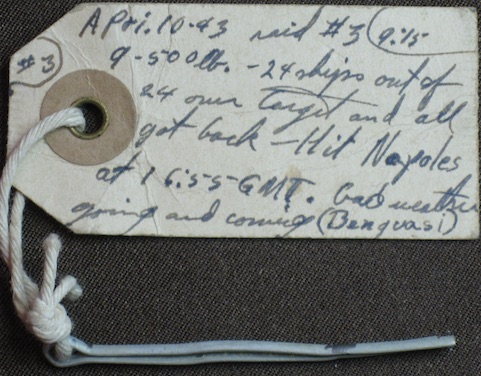 Apri. 10-43 raid #3 9:15
#3
9-500 lb. - 24 ships out of
24 over Target and all
got back - Hit Napoles
at 16:55 GMT. bad weather
going and coming (Benquasi)